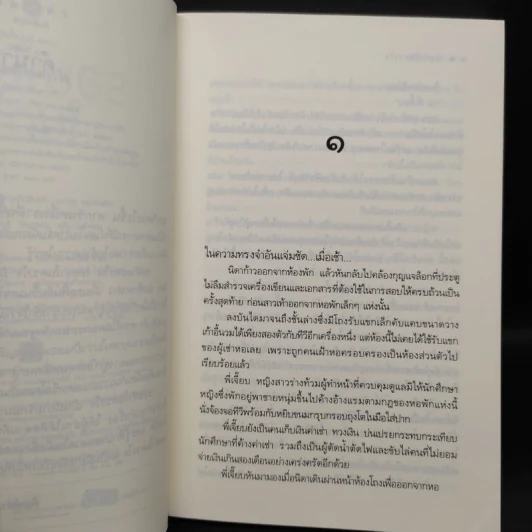 ๑
ในความทรงจำอันแจ่มชัด...เมื่อเช้า...
นิดาก้าวออกจากห้องพัก แล้วหันกลับไปคล้องกุญแจล็อกที่ประตู
ไม่ลืมสำรวจเครื่องเขียนและเอกสารที่ต้องใช้ในการสอบให้ครบถ้วนเป็น
ครั้งสุดท้าย ก่อนสาวเท้าออกจากหอพักเล็กๆ แห่งนั้น
ลงบันไดมาจนถึงชั้นล่างซึ่งมีโถงรับแขกเล็กคับแคบขนาดวาง
เก้าอี้นวมได้เพียงสองตัวกับทีวีอีกเครื่องหนึ่ง แต่ห้องนี้ไม่เคยได้ใช้รับแขก
ของผู้เช่าหอเลย เพราะถูกคนเฝ้าหอครอบครองเป็นห้องส่วนตัวไป
เรียบร้อยแล้ว
พี่เจี๊ยบ หญิงสาวร่างท้วมผู้ทำหน้าที่ควบคุมดูแลมิให้นักศึกษา
หญิงซึ่งพักอยู่พาชายหนุ่มขึ้นไปค้างอ้างแรมตามกฎของหอพักแห่งนี้
นั่งจ้องจอทีวีพร้อมกับหยิบขนมกรุบกรอบถุงโตในมือใส่ปาก
พี่เจี๊ยบยังเป็นคนเก็บเงินค่าเช่า ทวงเงิน บ่นเปรยกระทบกระเทียบ
นักศึกษาที่ค้างค่าเช่า รวมถึงเป็นผู้ตัดน้ำตัดไฟและขับไล่คนที่ไม่ยอม
จ่ายเงินเกินสองเดือนอย่างเคร่งครัดอีกด้วย
พี่เจี๊ยบหันมามองเมื่อนิดาเดินผ่านหน้าห้องโถงเพื่อออกจากหอ